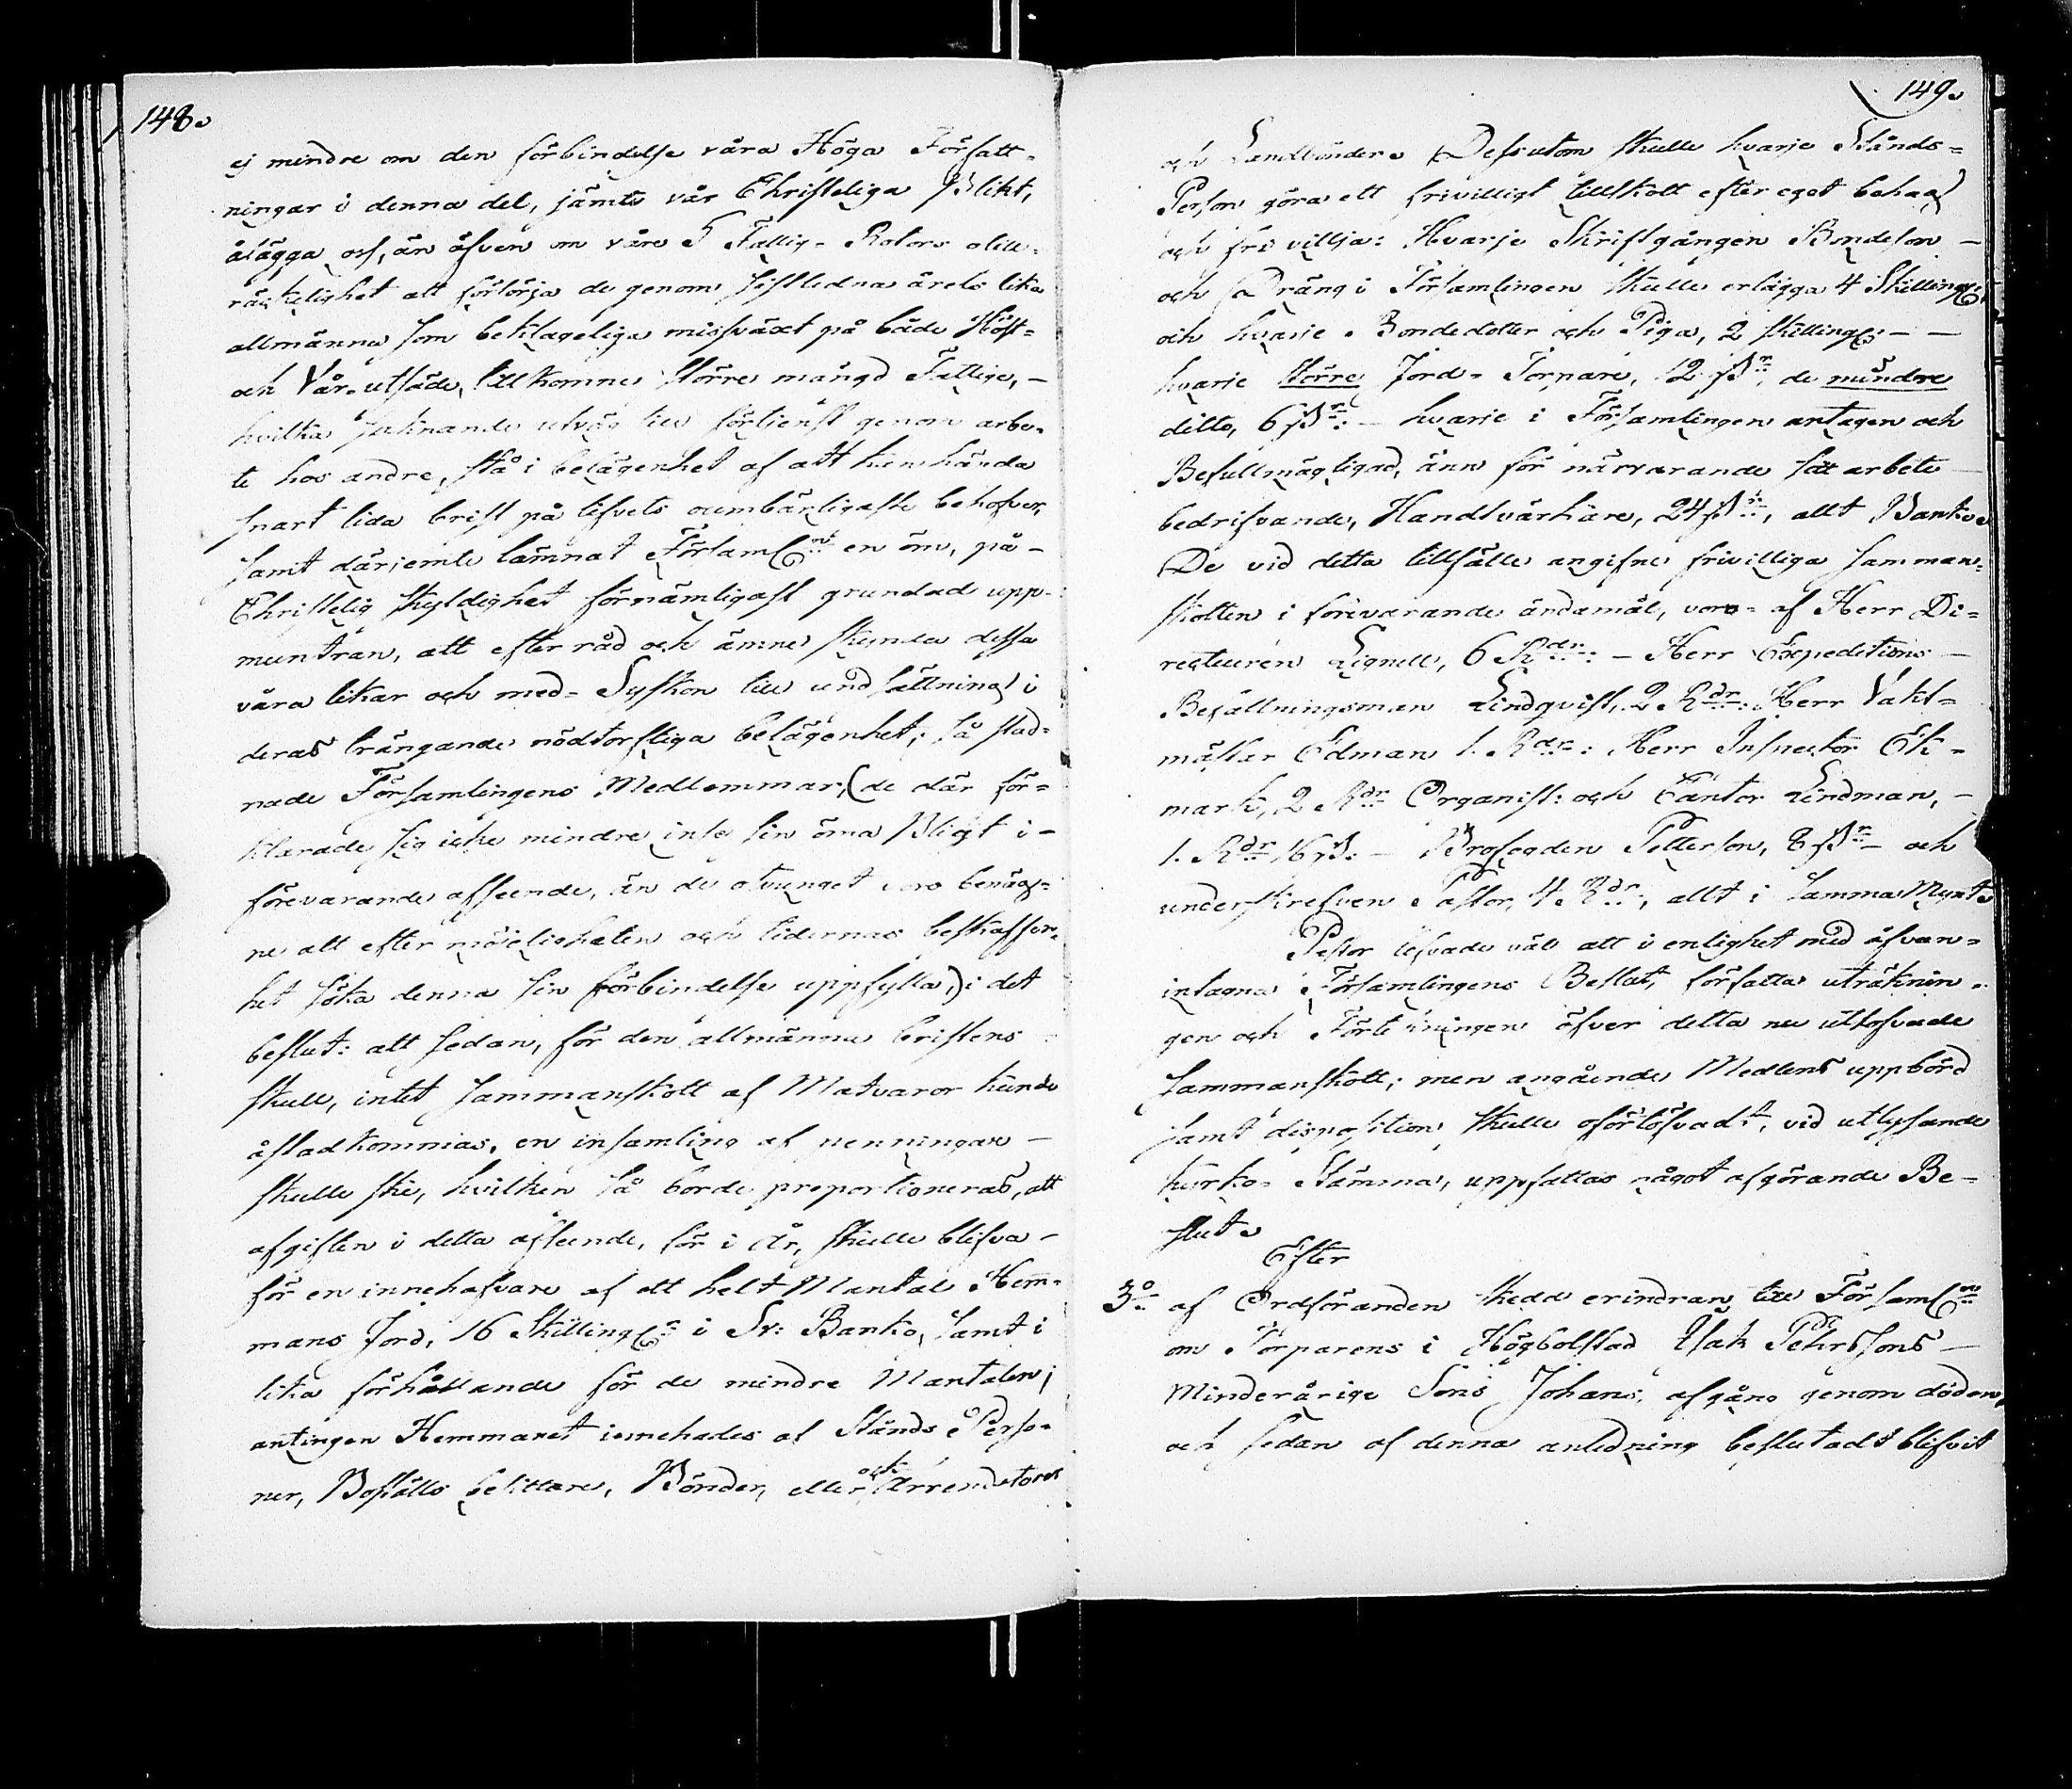 148.
ej mindre om den förbindelse våra Höga Författ-
ningar i denna del, jämte vår Christeliga Plikt,
ålägga oss, än äfven om våre 5 Fattig-Rotars otill-
räckelighet att försörja de genom sistledna årets lika
allmänna som beklageliga missväxt på både Höst-
och Vår-utsäde, tillkomne större mängd Fattige, -
hvilka saknande utväg till förtienst genom arbe-
te hos andre, stå i belägenhet af att kunhända
snart lida brist på lifvets oumbärligaste behofver,
samt därjemte lämnat Församl:n en öm, på -
Christelig skyldighet förnämligast grundad upp-
muntran, att efter råd och ämne skynda dessa
våra likar och med-Syskon till undsättning i
deras trängande nödtorftiga belägenhet; så stad-
nade Församlingens Medlemmar, (de där för-
klarade sig icke mindre inse sin öma Pligt i -
förevarande afseende, än de otvunget voro benäg-
ne att efter möjeligheten och tidernas beskaffen-
het söka denna sin förbindelse uppfylla,) i det
beslut: att sedan, för den allmänna bristens
skull, intet sammanskott af Matvaror kunde
åstadkommas, en insamling af penningar -
skulle ske, hvilken så borde proportioneras, att
afgiften i detta afseende, för i År, skulle blifva -
för en innehafvare af ett helt Mantal Hem-
mans Jord, 16 Skilling:r i Sv: Banko, samt i
lika förhållande för de mindre Mantalen;
antingen Hemmanet innehades af Stånds Perso-
ner, Boställs besittare, Bönder, eller ock Arrendatorer
149.
och Landbönder. Dessutom skulle hvarje Stånds-
Person göra ett frivilligt tillskott efter eget behag
och fri villja: Hvarje Skriftgången Bondeson -
och Dräng i Församlingen skulle erlägga 4 Skilling:r,
och hvarje Bondedotter och Piga, 2 skilling:r - -
hvarje större Jord-Torpare, 12 ß:r, de mindre
ditto, 6 ß:r: - hvarje i Församlingen antagen och
Befullmägtigad, ännu för närvarande sitt arbete
bedrifvande, Handtvärkare, 24 ß:r, allt Banko.
De vid detta tillfälle angifne frivilliga samman-
skotten i förevarande ändamål, voro- af Herr Di-
recteuren Lignell, 6 Rdr: - Herr Expeditions -
Befällningsman Lindqvist, 2 Rdr: Herr Vakt-
mästar Edman 1. Rdr: Herr Inspector Ek-
mark, 2 Rdr Organist: och Cantor Lindman, -
1. Rdr 16 ß: - Profogden Petterson, 8 ß:r - och
underskrefven Pastor, 4 Rdr, allt i samma Mynt.
Pastor lofvade väl att i enlighet med åfvan-
intagna Församlingens Beslut, författa uträknin-
gen och Förteckningen öfver detta nu utlofvade
sammanskott; men angående Medlens uppbörd
samt disposition, skulle oförtöfvad:t, vid utlysande
kyrko-Stämma, uppfattas något afgörande Be-
slut.
Efter
3:o af Ordföranden skedd erindran till Församl:n
om Torparens i Högbolstad Isak Pehrssons -
Minderårige Sons Johans, afgång genom döden,
och sedan af denna anledning beslutadt blifvit